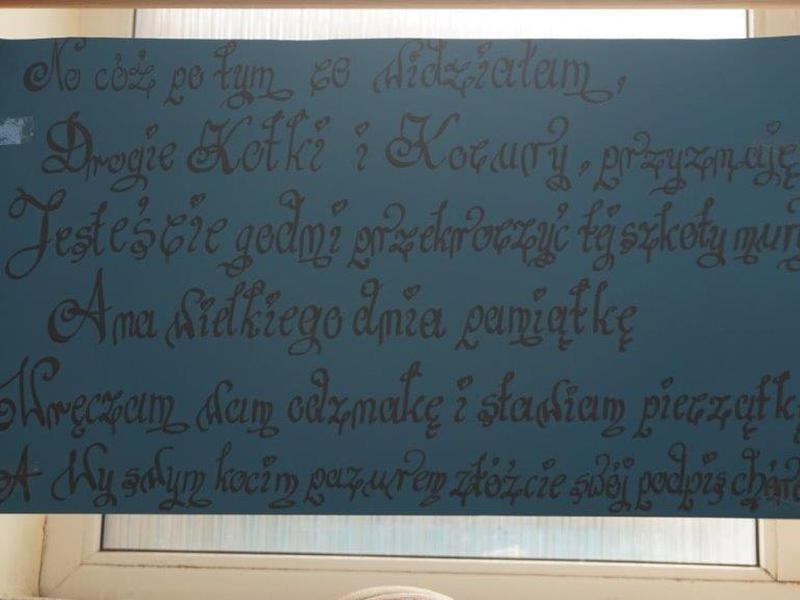 No cóż po tym co widziałam,
Drogie Kotki i Kocury, przyznaję
Jesteście godni przekroczyć tej szkoły mury
A na wielkiego dnia pamiątkę
Wręczam wam odznakę i stawiam pieczątk
A Wy swym kocim pazurem złóżcie swój podpis